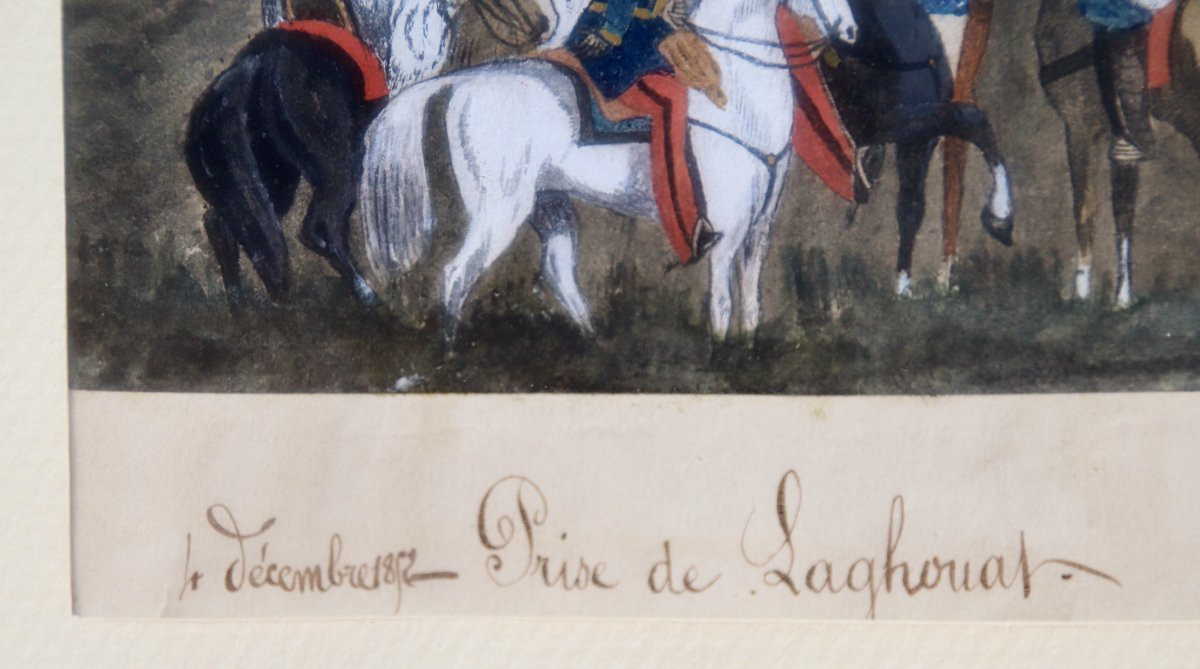 4 Décembre 1852 — Prise de Laghouat. —